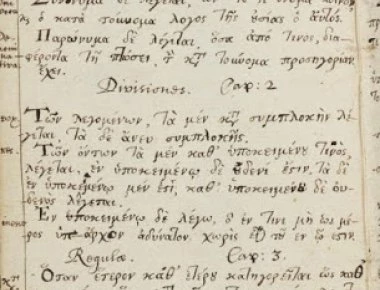 ὁ κατὰ τοὔνομα λόγος τῆς ὀσίας ὁ αὐτός.
Παρώνυμα δὲ λέγεται ὅσα ἀπό τινος, δια-
φέροντα τῇ πτώσει, τὴν κατὰ τοὔνομα προσηγορίαν
ἔχει.
Divisiones. Cap: 2
Τῶν λεγομένων, τὰ μὲν κατὰ συμπλοκὴν λέ-
γεται, τὰ δὲ ἄνευ συμπλοκῆς.
Τῶν ὄντων τὰ μὲν καθ' ὑποκειμένου τινὸς,
λέγεται, ἐν ὑποκειμένῳ δὲ οὐδενί ἐστιν. τὰ δὲ
ἐν ὑποκειμένῳ μέν ἐστι, καθ' ὑποκειμένου δὲ οὐ-
δενὸς λέγεται.
Ἐν ὑποκειμένῳ δὲ λέγω, ὃ ἔν τινι μὴ ὡς μέ-
ρος ὑπάρχον ἀδύνατον χωρὶς εἶναι τοῦ ἐν ᾧ ἐστιν.
Regulæ. Cap: 3.
Ὅταν ἕτερον καθ' ἑτέρου κατηγορεῖται ὡς καθ